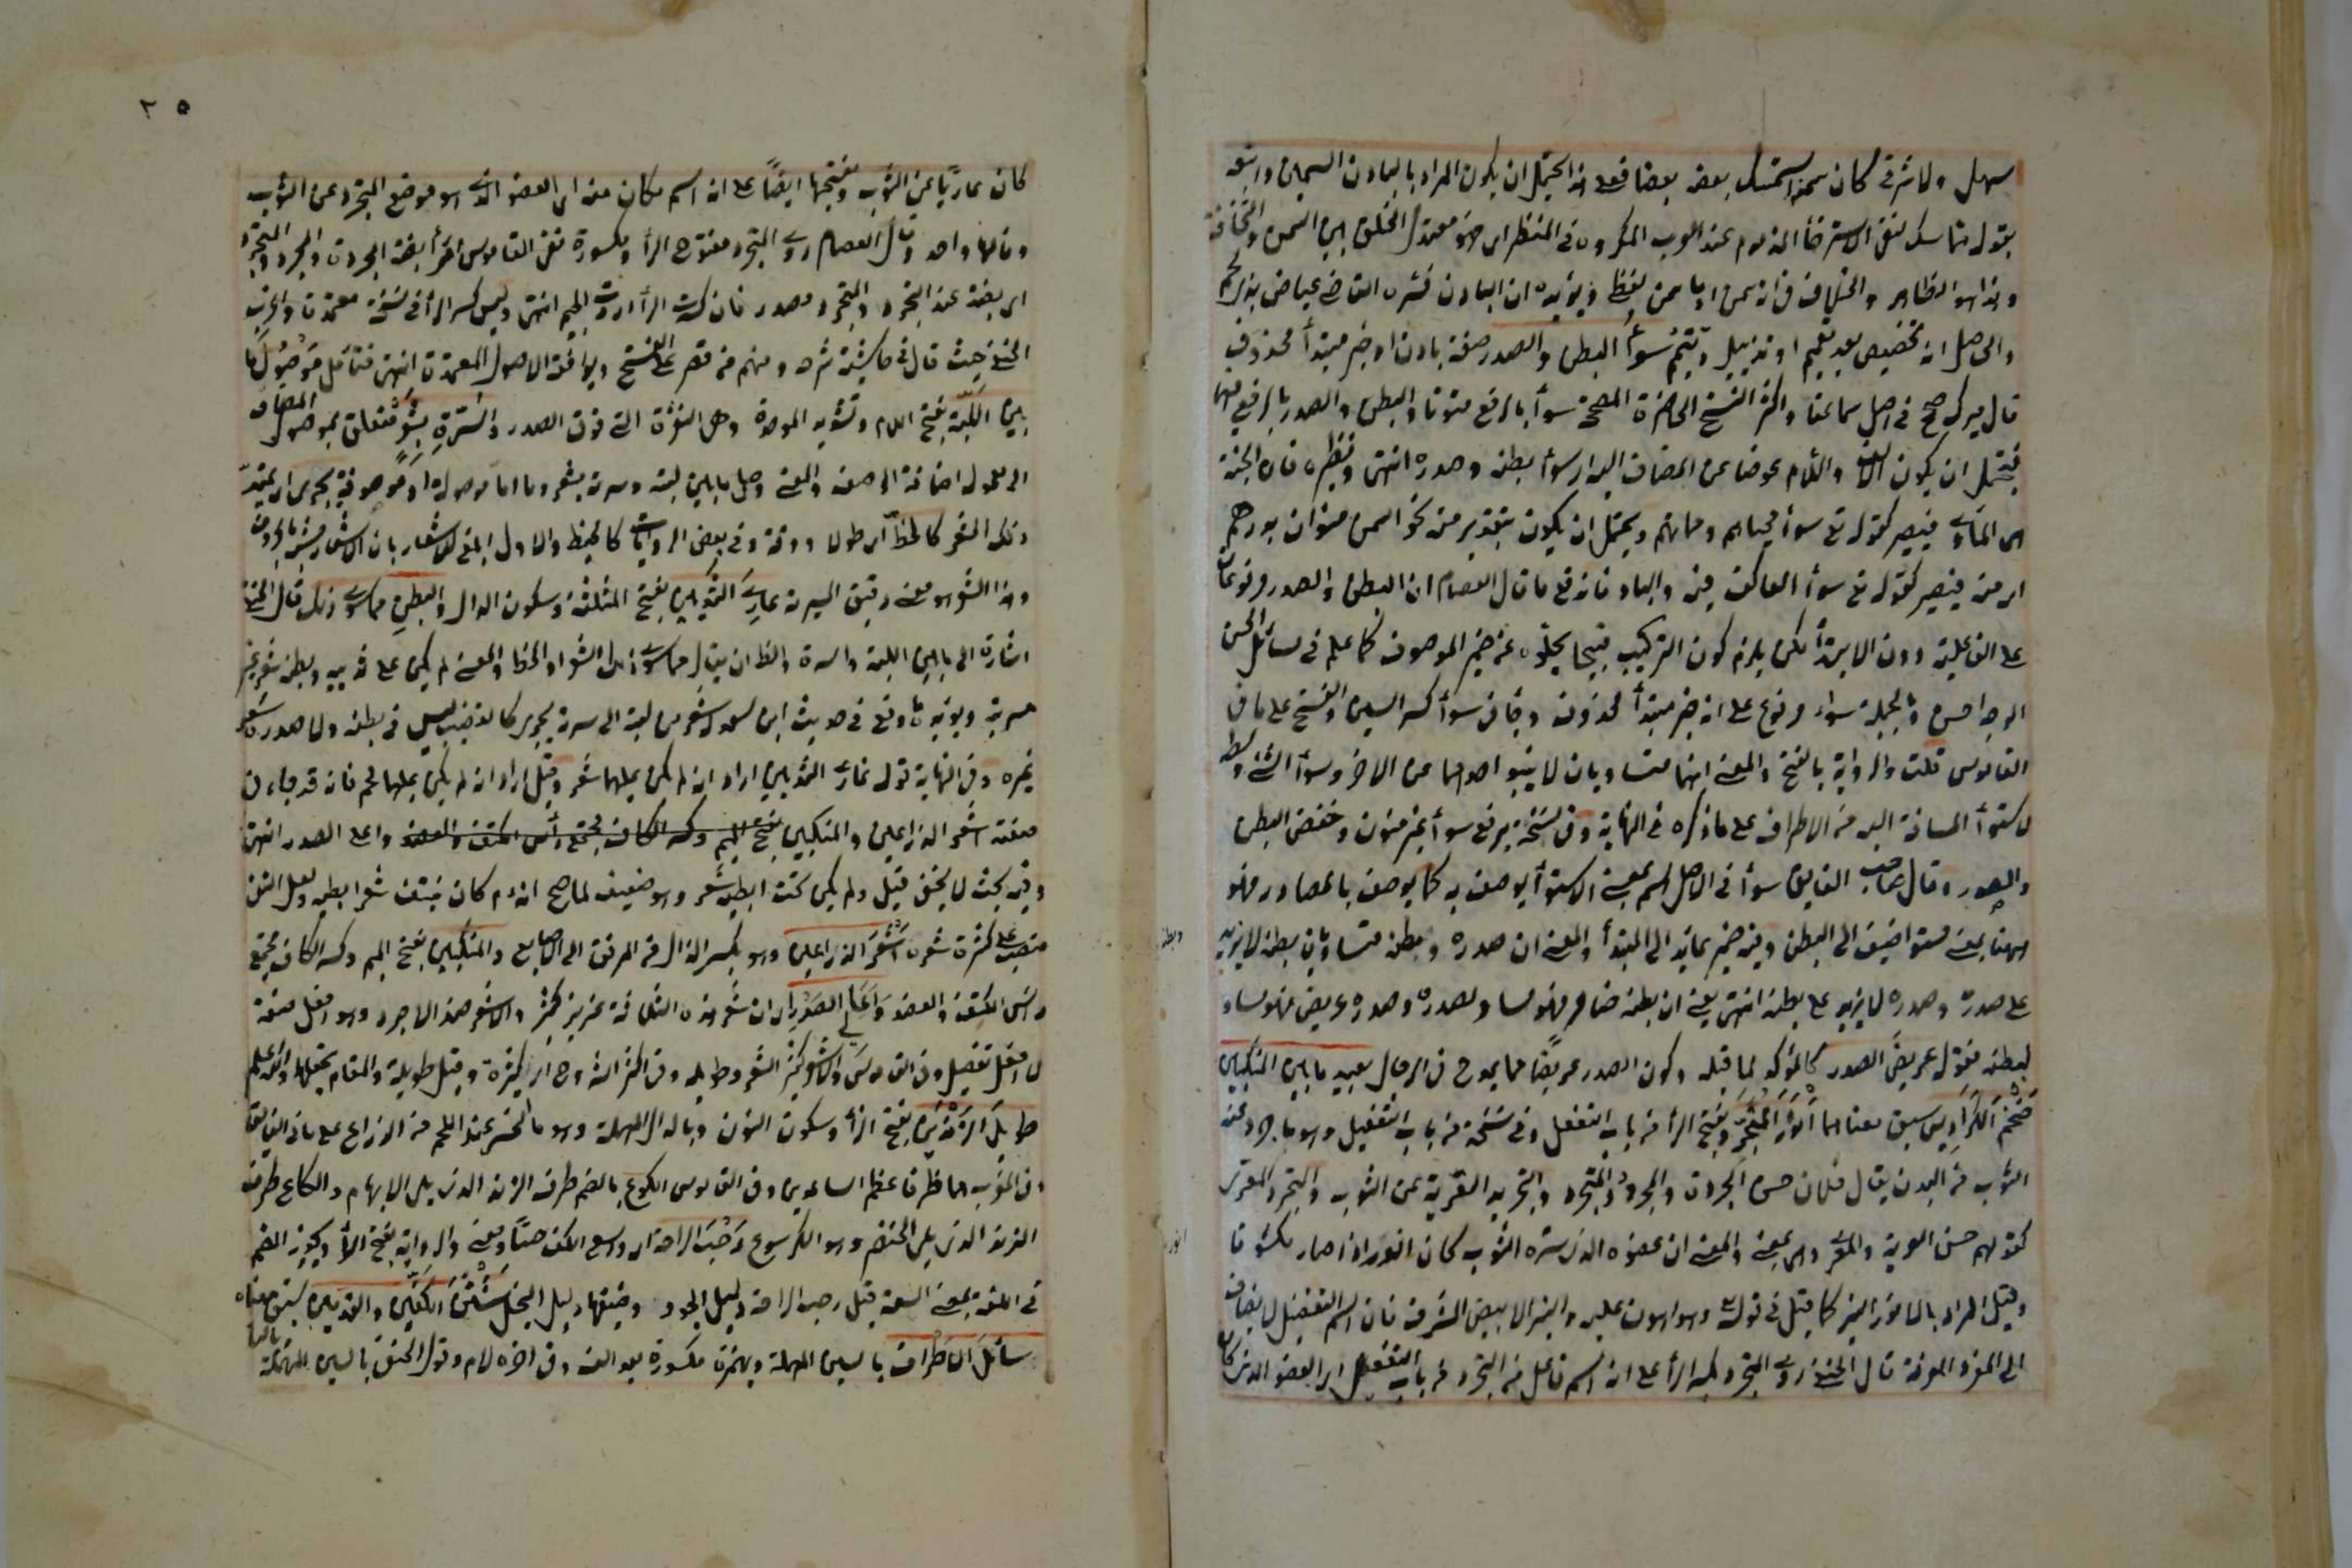 سهل ولا شرقى كان سمنه استمسك بعضه بعضا فعلى هذا يحتمل ان يكون المراد بالبادن السمين واتبعه
بقوله متماسك لنفى الاسترخاء المذموم عند العرب المكروه فى المنظر اى هو معتدل الخلق بين السمن والنحافة
وهذا هو الظاهر
والحاصل انه تخصيص بعد تعميم او تذييل وتتميم سوأ البطن والصدر صفة بادن او خبر مبتدأ محذوف
قال ميرك صح فى اصل سماعنا واكثر النسخ الحاضرة المصححة سوأ بالرفع منونا والبطن والصدر بالرفع فيهما
فيحتمل ان يكون الالف واللام عوضا عن المضاف اليه اى سوأ بطنه وصدره انتهى ونظيره فان الجنة
هى المأوى فيصير كقوله تع سوأ محياهم ومماتهم ويحتمل ان يكون بتقدير منه نحو السمن منوان بدرهم
اى منه فيصير كقوله تع سوأ العاكف فيه والباد فاندفع ما قال العصام ان البطن والصدر مرفوعان
على الفاعلية دون الابتدأ لكن يلزم كون التركيب قبيحا لخلوه عن ضمير الموصوف كما علم فى مسائل الحسن
الوجه احسن وبالجملة سواء مرفوع على انه خبر مبتدأ محذوف وجأ فى سوأ كسر السين والفتح على ما فى
القاموس قلت والرواية بالفتح والمعنى انهما متساويان لا ينبو احدهما عن الاخر وسوأ الشئ وسطه
لاستوأ المسافة اليه من الاطراف على ما ذكره فى النهاية وفى نسخة برفع سوأ غير منون وخفض البطن
والصدر وقال صاحب الفايق سوأ فى الاصل اسم بمعنى الاستوأ يوصف به كما يوصف بالمصادر فهو
ههنا بمعنى مستو اضيف الى البطن وفيه ضمير عايد الى المبتدأ والمعنى ان صدره وبطنه متساويان بطنه لا يزيد
على صدره وصدره لا يزيد على بطنه انتهى يعنى ان بطنه ضامر فهو مساو لصدره وصدره عريض فهو مساو
لبطنه فقوله عريض الصدر كالمؤكد لما قبله وكون الصدر عريضا مما يمدح فى الرجال بعيد ما بين المنكبين
ضخم الكراديس سبق معناهما انور المتجرد بفتح الرأ من باب التفعل وفى نسخة من باب التفعيل وهو ما جرد عنه
الثوب من البدن يقال فلان حسن الجردة والمجرد والمتجرد والتجريد التعرية عن الثوب والتجرد التعرى
كقولهم حسن العرية والمعرى وهى بمعنى والمعنى ان عضوه الذى ستره الثوب كان انور اذا صار مكشوفا
وقيل المراد بالانور النير كما قيل فى قوله وهو اهون عليه والنير الابيض المشرق فان اسم التفضيل لا يضاف
الى المفرد المعرفة قال الحنفى روى المتجرد بكسر الرأ على انه اسم فاعل من التجرد من باب التفعل اى العضو الذى كان
٢٥
كان عاريا عن الثوب وبفتحها ايضا على انه اسم مكان منه اى العضو الذى هو موضع التجرد عن الثوب
ومآلهما واحد وقال العصام روى المتجرد مفتوح الرأ ومكسورة ففى القاموس امرأة بضة الجردة والمجرد والمتجرد
اى بضة عند التجرد والمتجرد مصدر فان كسرت الرأ اردت الجسم انتهى وليس كسر الرأ فى نسخة معتمدة واغرب
الحنفى حيث قال فى حاشيته شرحه ومنهم من قصر على الفتح ويوافقه الاصول المعتمدة انتهى فتأمل موصول ما
بين اللبة بفتح اللام وتشديد الموحدة وهى النقرة التى فوق الصدر والسرة بشعر متعلق بموصول المضاف
الى معموله اضافة الى صفة والمعنى وصل ما بين لبته وسرته بشعر وما اما موصولة او موصوفة يجرى اى يمتد
ذلك الشعر كالخط اى طولا ودقة وفى بعض الروايات كالخيط والاول ابلغ للاشعار بان الاشعار مشبه بالحروف
وهذا الشعر هو معنى دقيق المسربة عارى الثديين بفتح المثلثة وسكون الدال والبطن مما سوى ذلك قال الحنفى
اشارة الى ما بين اللبة والسرة والظ ان يقال مما سوى ذلك الشعر او الخط والمعنى لم يكن على ثدييه وبطنه شعر غير
مسربة ويؤيده ما وقع فى حديث ابن سعد له شعر من لبته الى سرته يجرى كالقضيب ليس فى بطنه ولا صدره شعر
غيره وفى النهاية قوله عارى الثديين اراد انه لم يكن عليهما شعر وقيل اراد انه لم يكن عليهما لحم فانه قد جاء فى
صفته اشعر الذراعين والمنكبين بفتح الميم وكسر الكاف مجتمع رأس الكتف والعضد واعلى الصدر انتهى
وفيه بحث لا يخفى قيل ولم يكن تحت ابطيه شعر وهو ضعيف لما صح انه م كان ينتف شعر ابطيه ولعل النفى
منصب على كثرة شعره اشعر الذراعين وهو بكسر الذال من المرفق الى الاصابع والمنكبين بفتح الميم وكسر الكاف مجتمع
رأس الكتف والعضد واعالى الصدر اى ان شعر هذه الثلاثة غزير كثير والاشعر ضد الاجرد وهو افعل صفة
لا افعل تفضيل وفى القاموس والاشعر كثير الشعر وطويله وفى اكثر الشروح اى كثيرة وقيل طويلة والمقام يحتملهما والله اعلم
طويل الزندين بفتح الزأ وسكون النون وبالدال المهملة وهو ما انحسر عنه اللحم من الذراع على ما فى الفايق
وفى المغرب هما طرفا عظم الساعدين وفى القاموس الكوع بالضم طرف الزند الذى يلى الابهام والكاع طرف
الزند الذى يلى الخنصر وهو الكرسوع رحب الراحة اى واسع الكف حسا ومعنى والرواية بفتح الرأ ويجوز الضم
فى اللغة بمعنى السعة قيل رحب الراحة دليل الجود وضيقها دليل البخل شثن الكفين والقدمين سبق معناه
سائل الاطراف بالسين المهملة وبهمزة مكسورة بعد الف وفى اخره لام وقول الحنفى بالسين المهملة